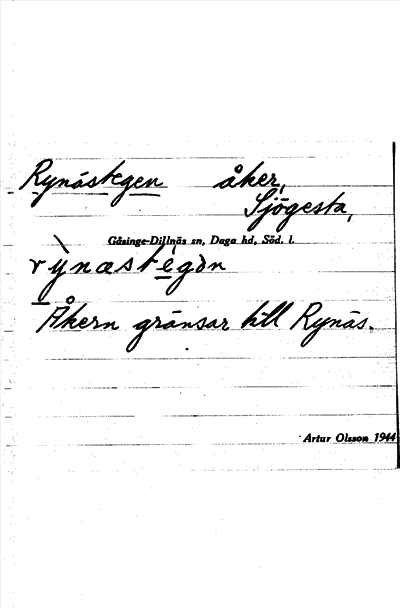 Rynästegen åker,
Sjögesta,
Gåsinge-Dillnäs sn, Daga hd, Söd. l.
rỳnæstègən
Åkern gränsar till Rynäs.
Artur Olsson 1944